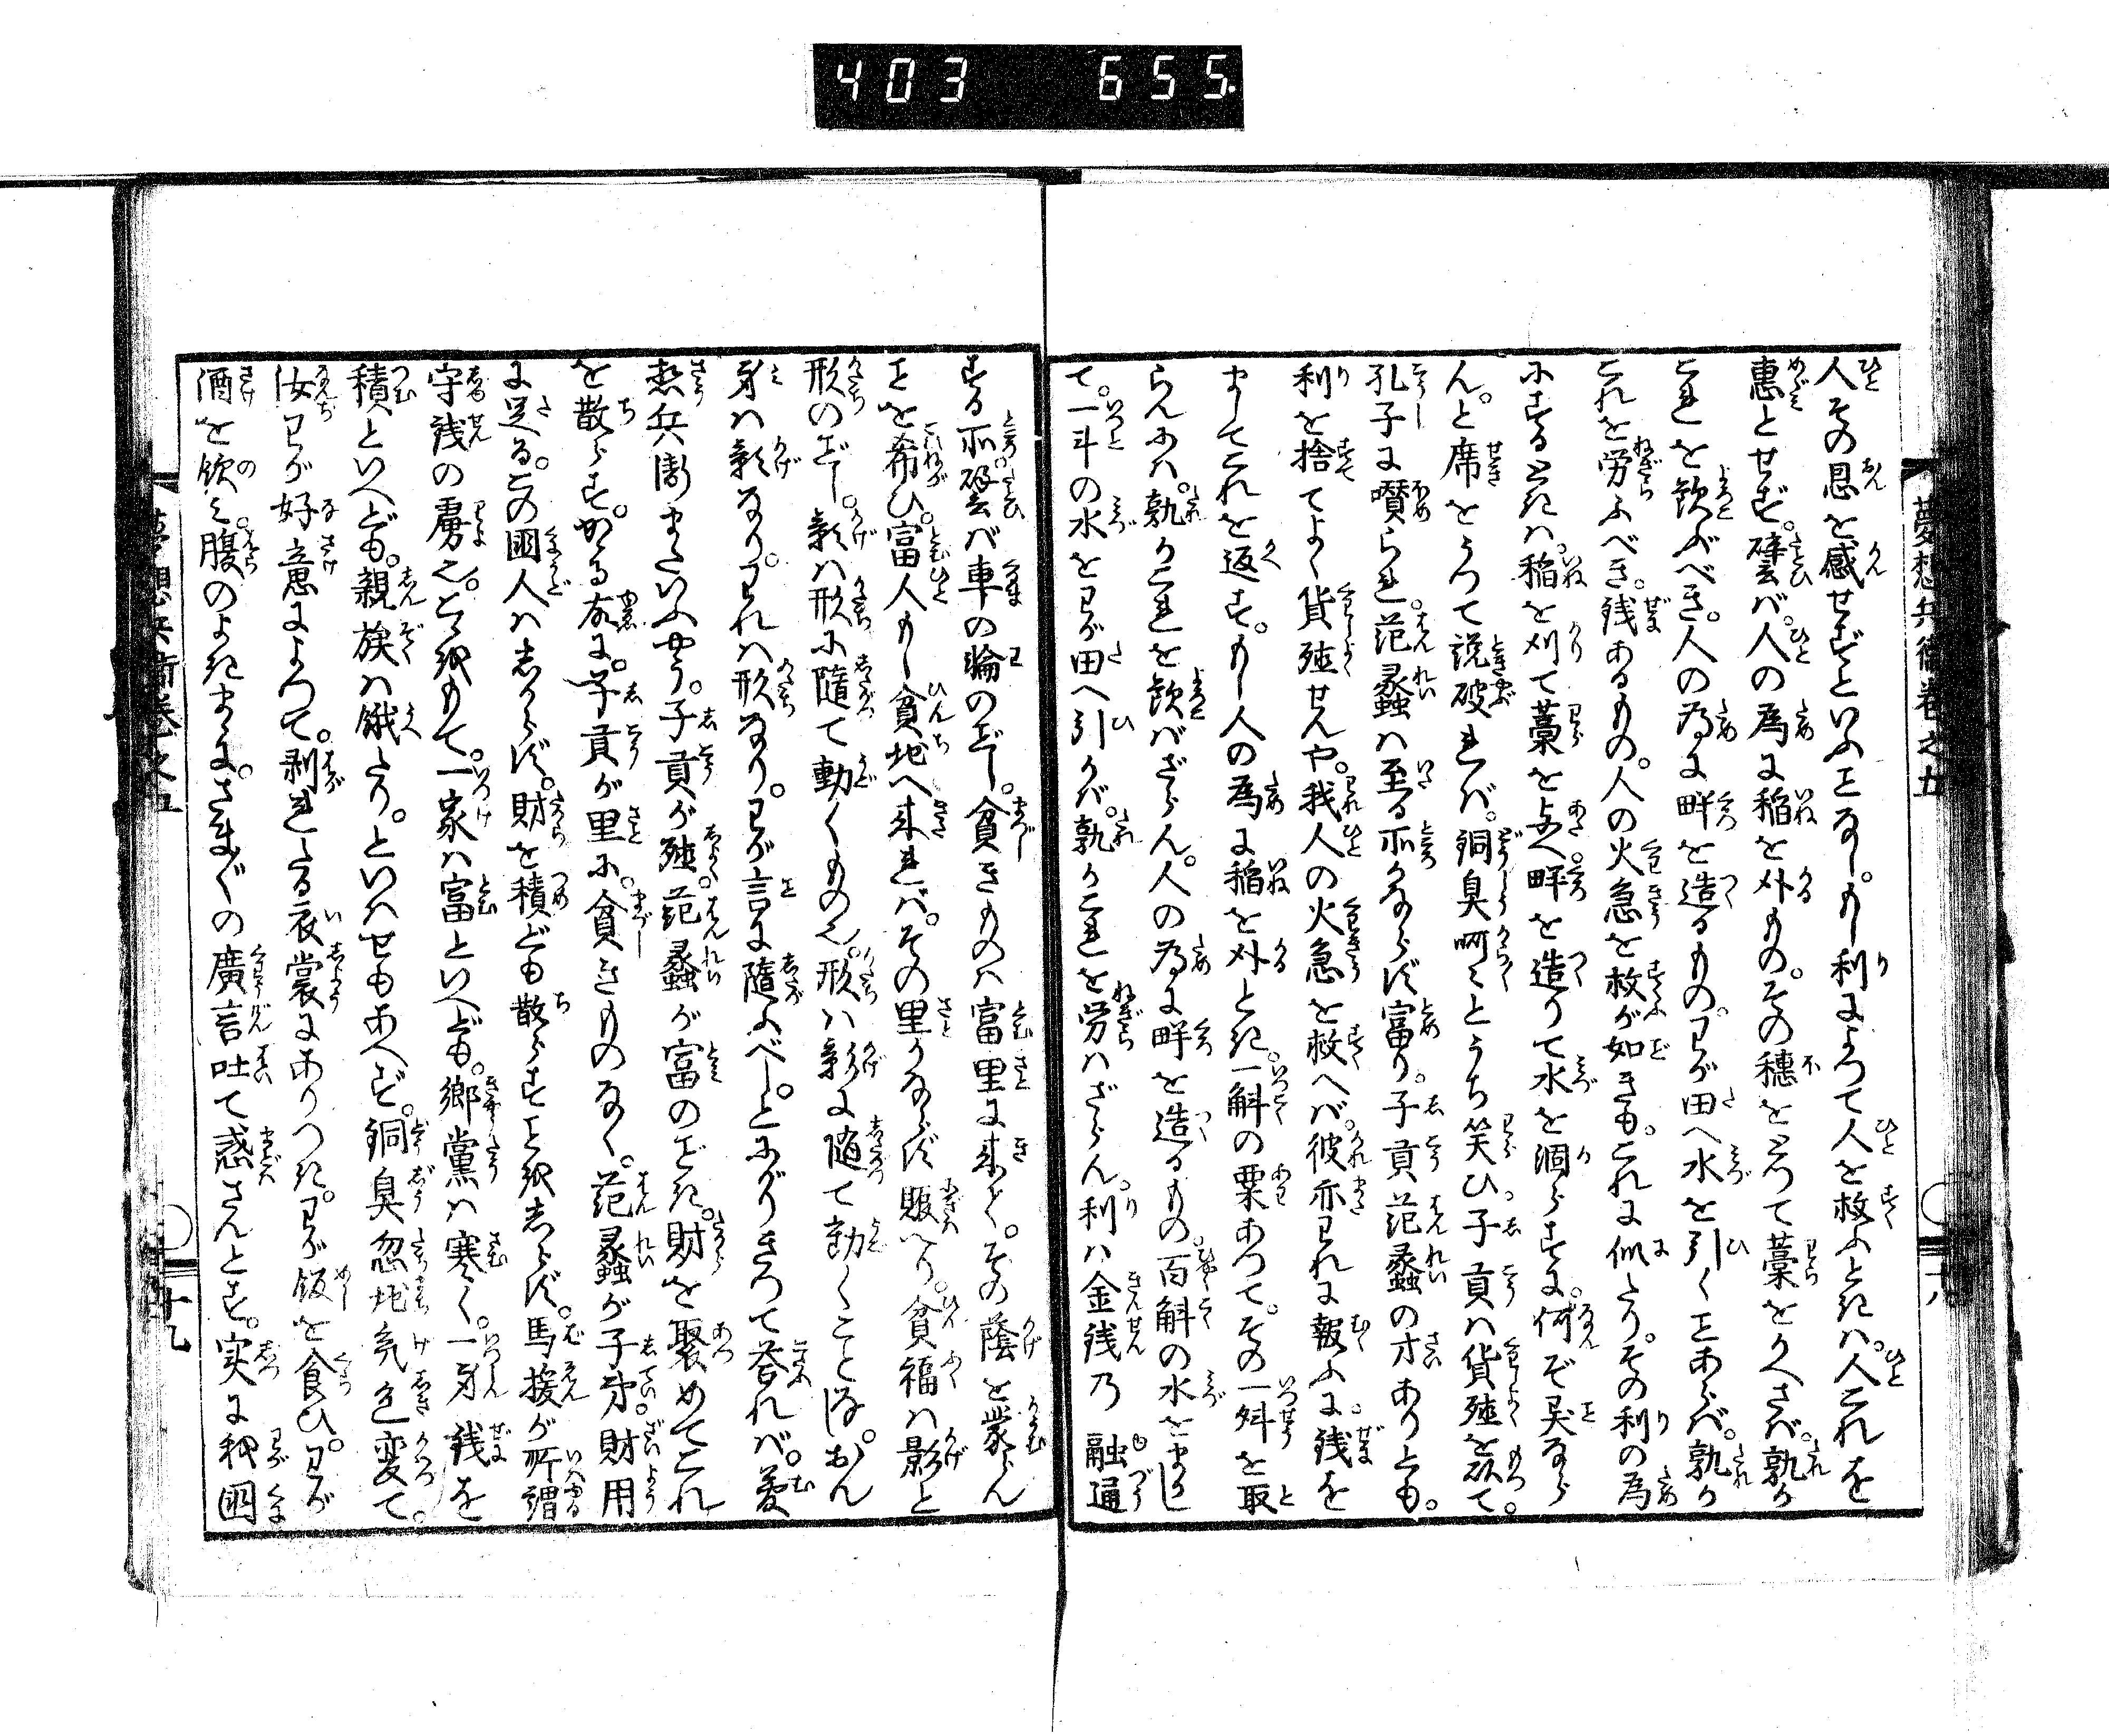 403 655.
夢想兵衛巻之五
十八
人その恩を感せずといふことなし。もし利によつて人を救ふときハ。人これを
惠とせず。譬バ。人の為に稲を刈もの。その穂をとつて藁をかへさバ。孰か
これを歓ぶべき。人の為に畔を造るもの。わが田へ水を引くことあらバ。孰か
これを労ふべき。銭あるもの。人の火急を救が如きも。これに似たり。その利の為
にするときハ。稲を刈て藁を与へ。畔を造りて水を涸らすに。何ぞ異なら
ん。と席をうつて説破れバ。銅臭呵〻とうち笑ひ。子貢ハ貨殖を以て。
孔子に嘖られ。范蠡ハ至る所かならず富り。子貢范蠡の才ありとも。
利を捨てよく貨殖せんや。我人の火急を救へバ。彼亦われに報ふに。銭を
ましてこれを返す。もし人の為に稲を刈とき。一斛の粟あつて。その一舛を取
らんにハ。孰かこれを歓バざらん。人の為に畔を造るもの。百斛の水をまし
て。一斗の水をわが田へ引かバ。孰かこれを労ハざらん。利ハ金銭乃融通
する所。譬バ車の輪のごとし。貧きものハ富里に来て。その蔭を蒙らん
ことを希ひ。富人もし貧地へ来れバ。その里かならず賑へり。貧福ハ影と
形のごとし。影ハ形に随て動くもの也。形ハ影に随て動くことなし。おん
身ハ影なり。われハ形なり。わが言に随ふべし。とにがりきつて答れバ。夢
想兵衛またいふやう。子貢が殖。范蠡が富のごとき。財を聚めてこれ
を散らす。かゝる故に。子貢が里に。貧しきものなく。范蠡が子弟。財用
に足る。この国人ハしからず。財を積ども散らすことを知らず。馬援が所謂
守銭の虜也。こゝをもて。一家ハ富といへども。郷黨ハ寒く。一身銭を
積といへども。親族ハ餓たり。といはせもあへず。銅臭忽地気色変て。
汝わが好意によつて。剥れたる衣裳にありつき。わが飯を食ひ。わが
酒を飲み腹のよきまゝに。さま〴〵の廣言吐て惑さんとす。実に我国
夢想兵衛巻之五
十九